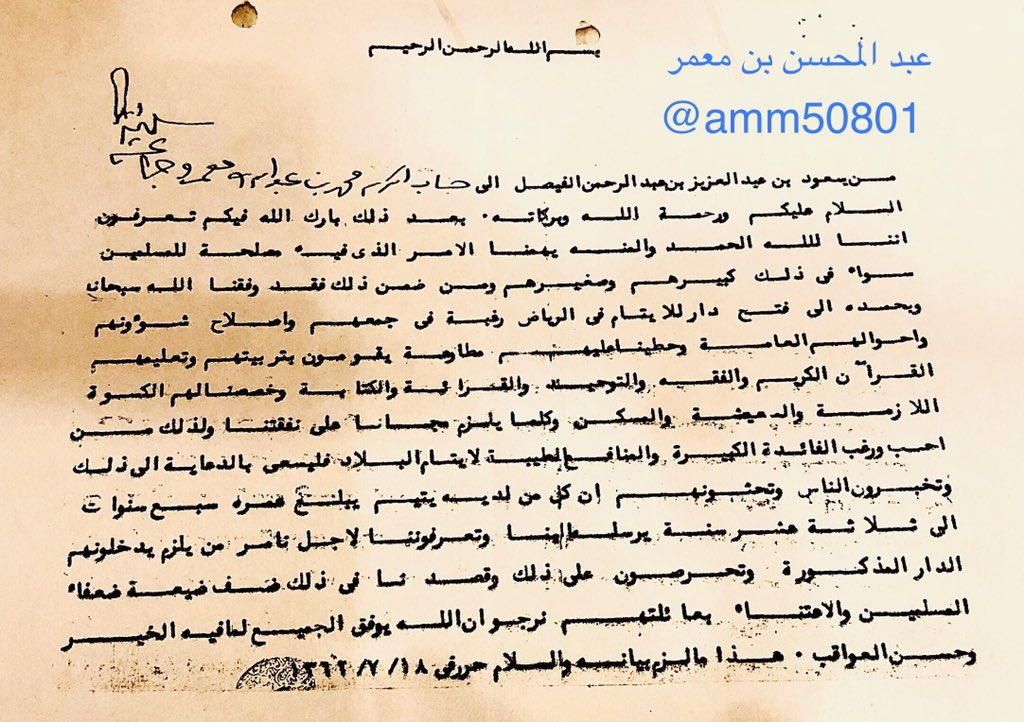 بسم الله الرحمن الرحيم
عبد المحسن بن معمر
@amm50801
من سعود بن عبد العزيز بن عبد الرحمن الفيصل الى جناب المكرم محمد بن معمر
السلام عليكم ورحمة الله وبركاته. بعد ذلك بارك الله فيكم تعرفون
اننا لله الحمد والمنه يهمنا الامر الذى فيه مصلحة للمسلمين
سواء فى ذلك كبيرهم وصغيرهم ومن ضمن ذلك فقد وفقنا الله سبحانه
وبحمده الى فتح دار للايتام فى الرياض رغبة فى جمعهم واصلاح شوؤنهم
واحوالهم العامة وحطينا عليهم مطاوعة يقومون بتربيتهم وتعليمهم
القرآن الكريم والفقه والتوحيد والقرائة والكتابة وخصصنا لهم الكسوة
اللازمة والمعيشة والمسكن وكلما يلزم مجانا على نفقتنا ولذلك من
احب ورغب الفائدة الكبيرة والمنافع الطيبة لايتام البلاد فليسعى بالدعاية الى ذلك
وتخبرون الناس وتحثونهم إن كل من لديه يتيم يبلغ عمره سبع سنوات
الى ثلاثة عشر سنة يرسله الينا وتعرفوننا لاجل نامر من يلزم يدخلونهم
الدار المذكورة وتحرصون على ذلك وقصدنا فى ذلك ضعفاء
المسلمين والاعتناء بعائلتهم نرجو ان الله يوفق الجميع لمافيه الخير
وحسن العواقب. هذا مالزم بيانه والسلام حرر فى ١٣٦٢/٧/١٨